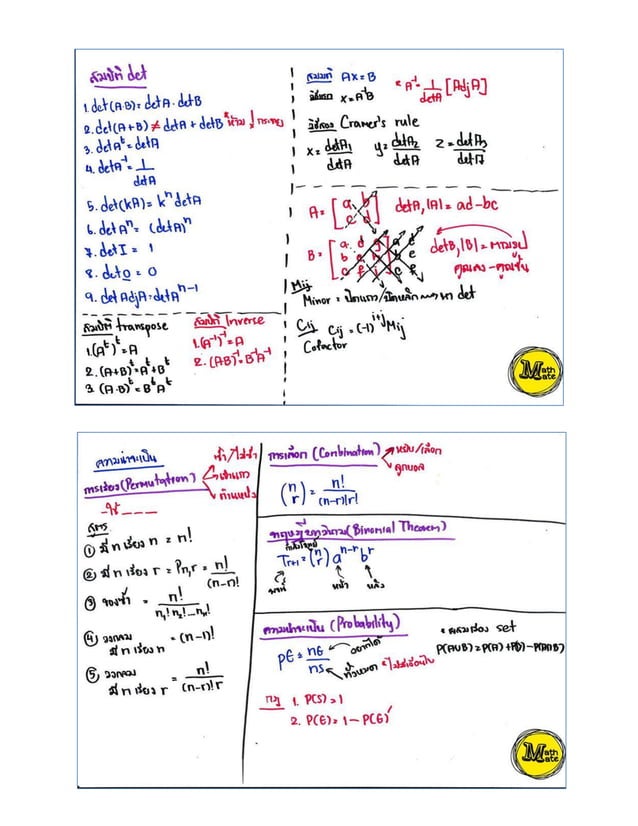 สมบัติ det
1. det(A·B) = detA · detB
2. det(A+B) ≠ detA + detB ห้าม ! กระจาย
3. detAᵗ = detA
4. detA⁻¹ = 1/detA
5. det(kA) = kⁿ detA
6. detAⁿ = (detA)ⁿ
7. det I = 1
8. det 0 = 0
9. det AdjA = detAⁿ⁻¹
สมบัติ transpose
1. (Aᵗ)ᵗ = A
2. (A+B)ᵗ = Aᵗ + Bᵗ
3. (A·B)ᵗ = BᵗAᵗ
สมบัติ Inverse
1. (A⁻¹)⁻¹ = A
2. (AB)⁻¹ = B⁻¹A⁻¹
AX = B
วิธีแรก X = A⁻¹B
* A⁻¹ = 1/detA [AdjA]
วิธีสอง Cramer's rule
x = detA₁/detA y = detA₂/detA z = detA₃/detA
A = [a b
c d] detA, |A| = ad - bc
B = detB, |B| = ตามรูป
คูณลง - คูณขึ้น
Mij
Minor = ปิดแถว/ปิดหลัก หา det
Cij Cij = (-1)ⁱ⁺ʲ Mij
Cofactor
Math Mate
ความน่าจะเป็น
การเรียง (Permutation)
ซ้ำ/ไม่ซ้ำ
ตำแหน่ง
สูตร
① มี n เรียง n = n!
② มี n เรียง r = Pn,r = n!/(n-r)!
③ ของซ้ำ = n!/n₁!n₂!...nₙ!
④ วงกลม
มี n เรียง n = (n-1)!
⑤ วงกลม
มี n เรียง r = n!/(n-r)!r
การเลือก (Combination)
หยิบ/เลือก
(n r) = n!/(n-r)!r!
ทฤษฎีบททวินาม (Binomial Theorem)
Tr+1 = (n r) aⁿ⁻ʳ bʳ
หน้า หลัง
ความน่าจะเป็น (Probability)
PE = nE/nS
อยากได้
ทั้งหมด * ไม่มีเงื่อนไข
กฎ 1. P(S) = 1
2. P(E) = 1 - P(E)′
set
P(A∪B) = P(A) + P(B) - P(A∩B)
Math Mate